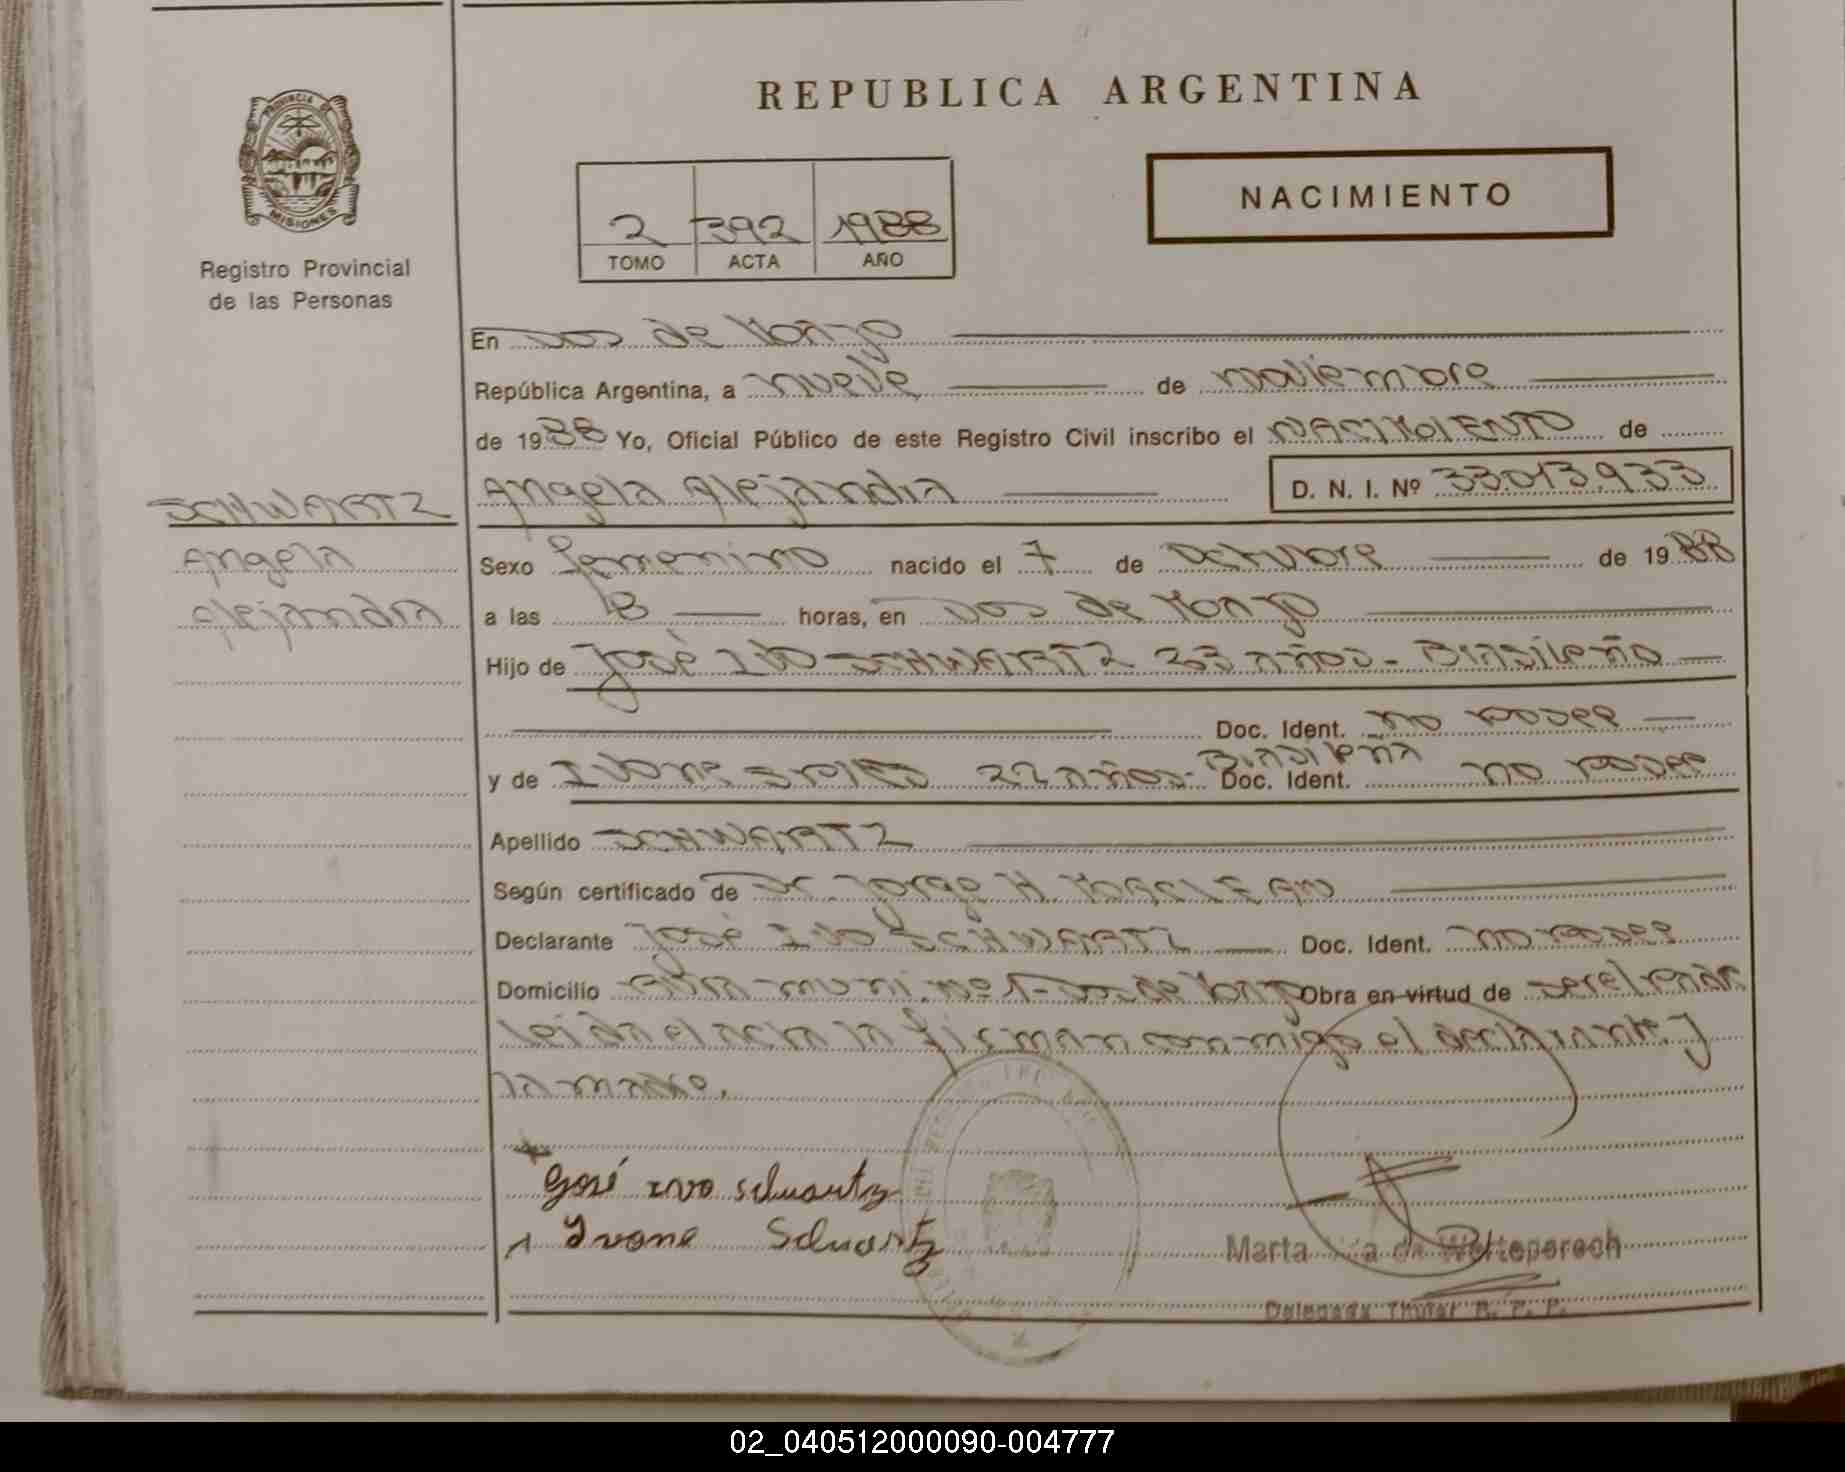 PROVINCIA DE
MISIONES
Registro Provincial
de las Personas
REPUBLICA ARGENTINA
NACIMIENTO
2 392 1988
TOMO ACTA AÑO
En Dos de Mayo
República Argentina, a nueve de noviembre
de 1988 Yo, Oficial Público de este Registro Civil inscribo el NACIMIENTO de
Angela Alejandra D. N. I. Nº 33.013.933
SCHWARTZ
Angela
Alejandra
Sexo femenino nacido el 7 de octubre de 1988
a las horas, en Dos de Mayo
Hijo de José Ivo SCHWARTZ 33 años - Brasileño
Doc. Ident. no posee
y de Ivone 22 años - Brasileña Doc. Ident. no posee
Apellido SCHWARTZ
Según certificado de Dr. Jorge H. MACLEAN
Declarante José Ivo SCHWARTZ Doc. Ident. no posee
Domicilio muni. nº 1 - Dos de Mayo Obra en virtud de ser el padre
leída el acta la firman conmigo el declarante y
la madre.
José Ivo Schwartz
Ivone Schwartz
Marta de Welteperech
Delegada Titular R. P. P.
02_040512000090-004777